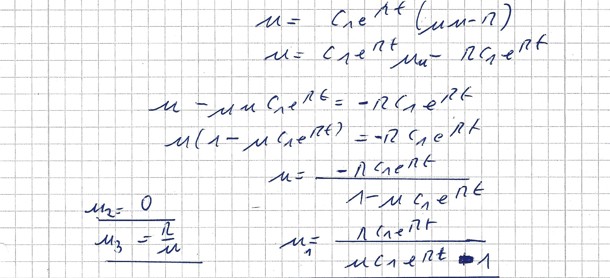 u = C₁e^{rt} (μu - r)
u = C₁e^{rt} μu - rC₁e^{rt}
u - μu C₁e^{rt} = -rC₁e^{rt}
u(1 - μC₁e^{rt}) = -rC₁e^{rt}
u = \frac{-rC₁e^{rt}}{1 - μC₁e^{rt}}
u₂ = 0
u₃ = \frac{r}{μ}
u₁ = \frac{rC₁e^{rt}}{μC₁e^{rt} - 1}